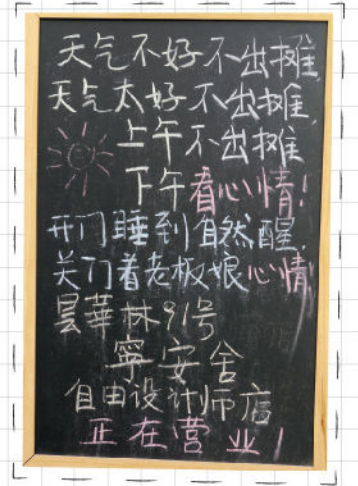 天气不好不出摊,
天气太好不出摊,
上午不出摊
下午看心情!
开门睡到自然醒,
关门看老板娘心情!
昙華林91号
寧安舍
自由设计师店
正在营业!